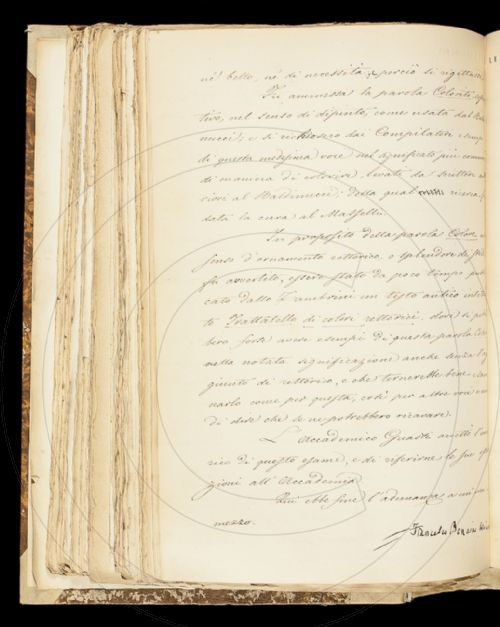 nè bello, nè di necessità; e perciò si rigettasse.
Fu ammessa la parola Colorito
tivo, nel senso di dipinto, come usata dal
nucci; e si richiesero dai Compilatori esempi
di questa medesima voce nel significato più comune
di maniera di colorire, levati da scrittori
riori al Baldinucci: della qual ricerca
data la cura al Masselli.
In proposito della parola Colore
senso d'ornamento rettorico, o splendore di
fu avvertito, essere stato da poco tempo
cato dallo Zambrini un testo antico
to Trattatello di colori rettorici, dove si
bero forse avere esempi di questa parola
nella notata significazione anche senza l'
giunto di rettorico, e che tornerebbe bene
narlo come per questa, così per altre voci
di dire che se ne potrebbero ricavare.
L'Accademico Guasti accettò l'
rico di questo esame, e di riferirne le sue
zioni all'Accademia.
Qui ebbe fine l'adunanza a un'ora
mezzo.
Francesco